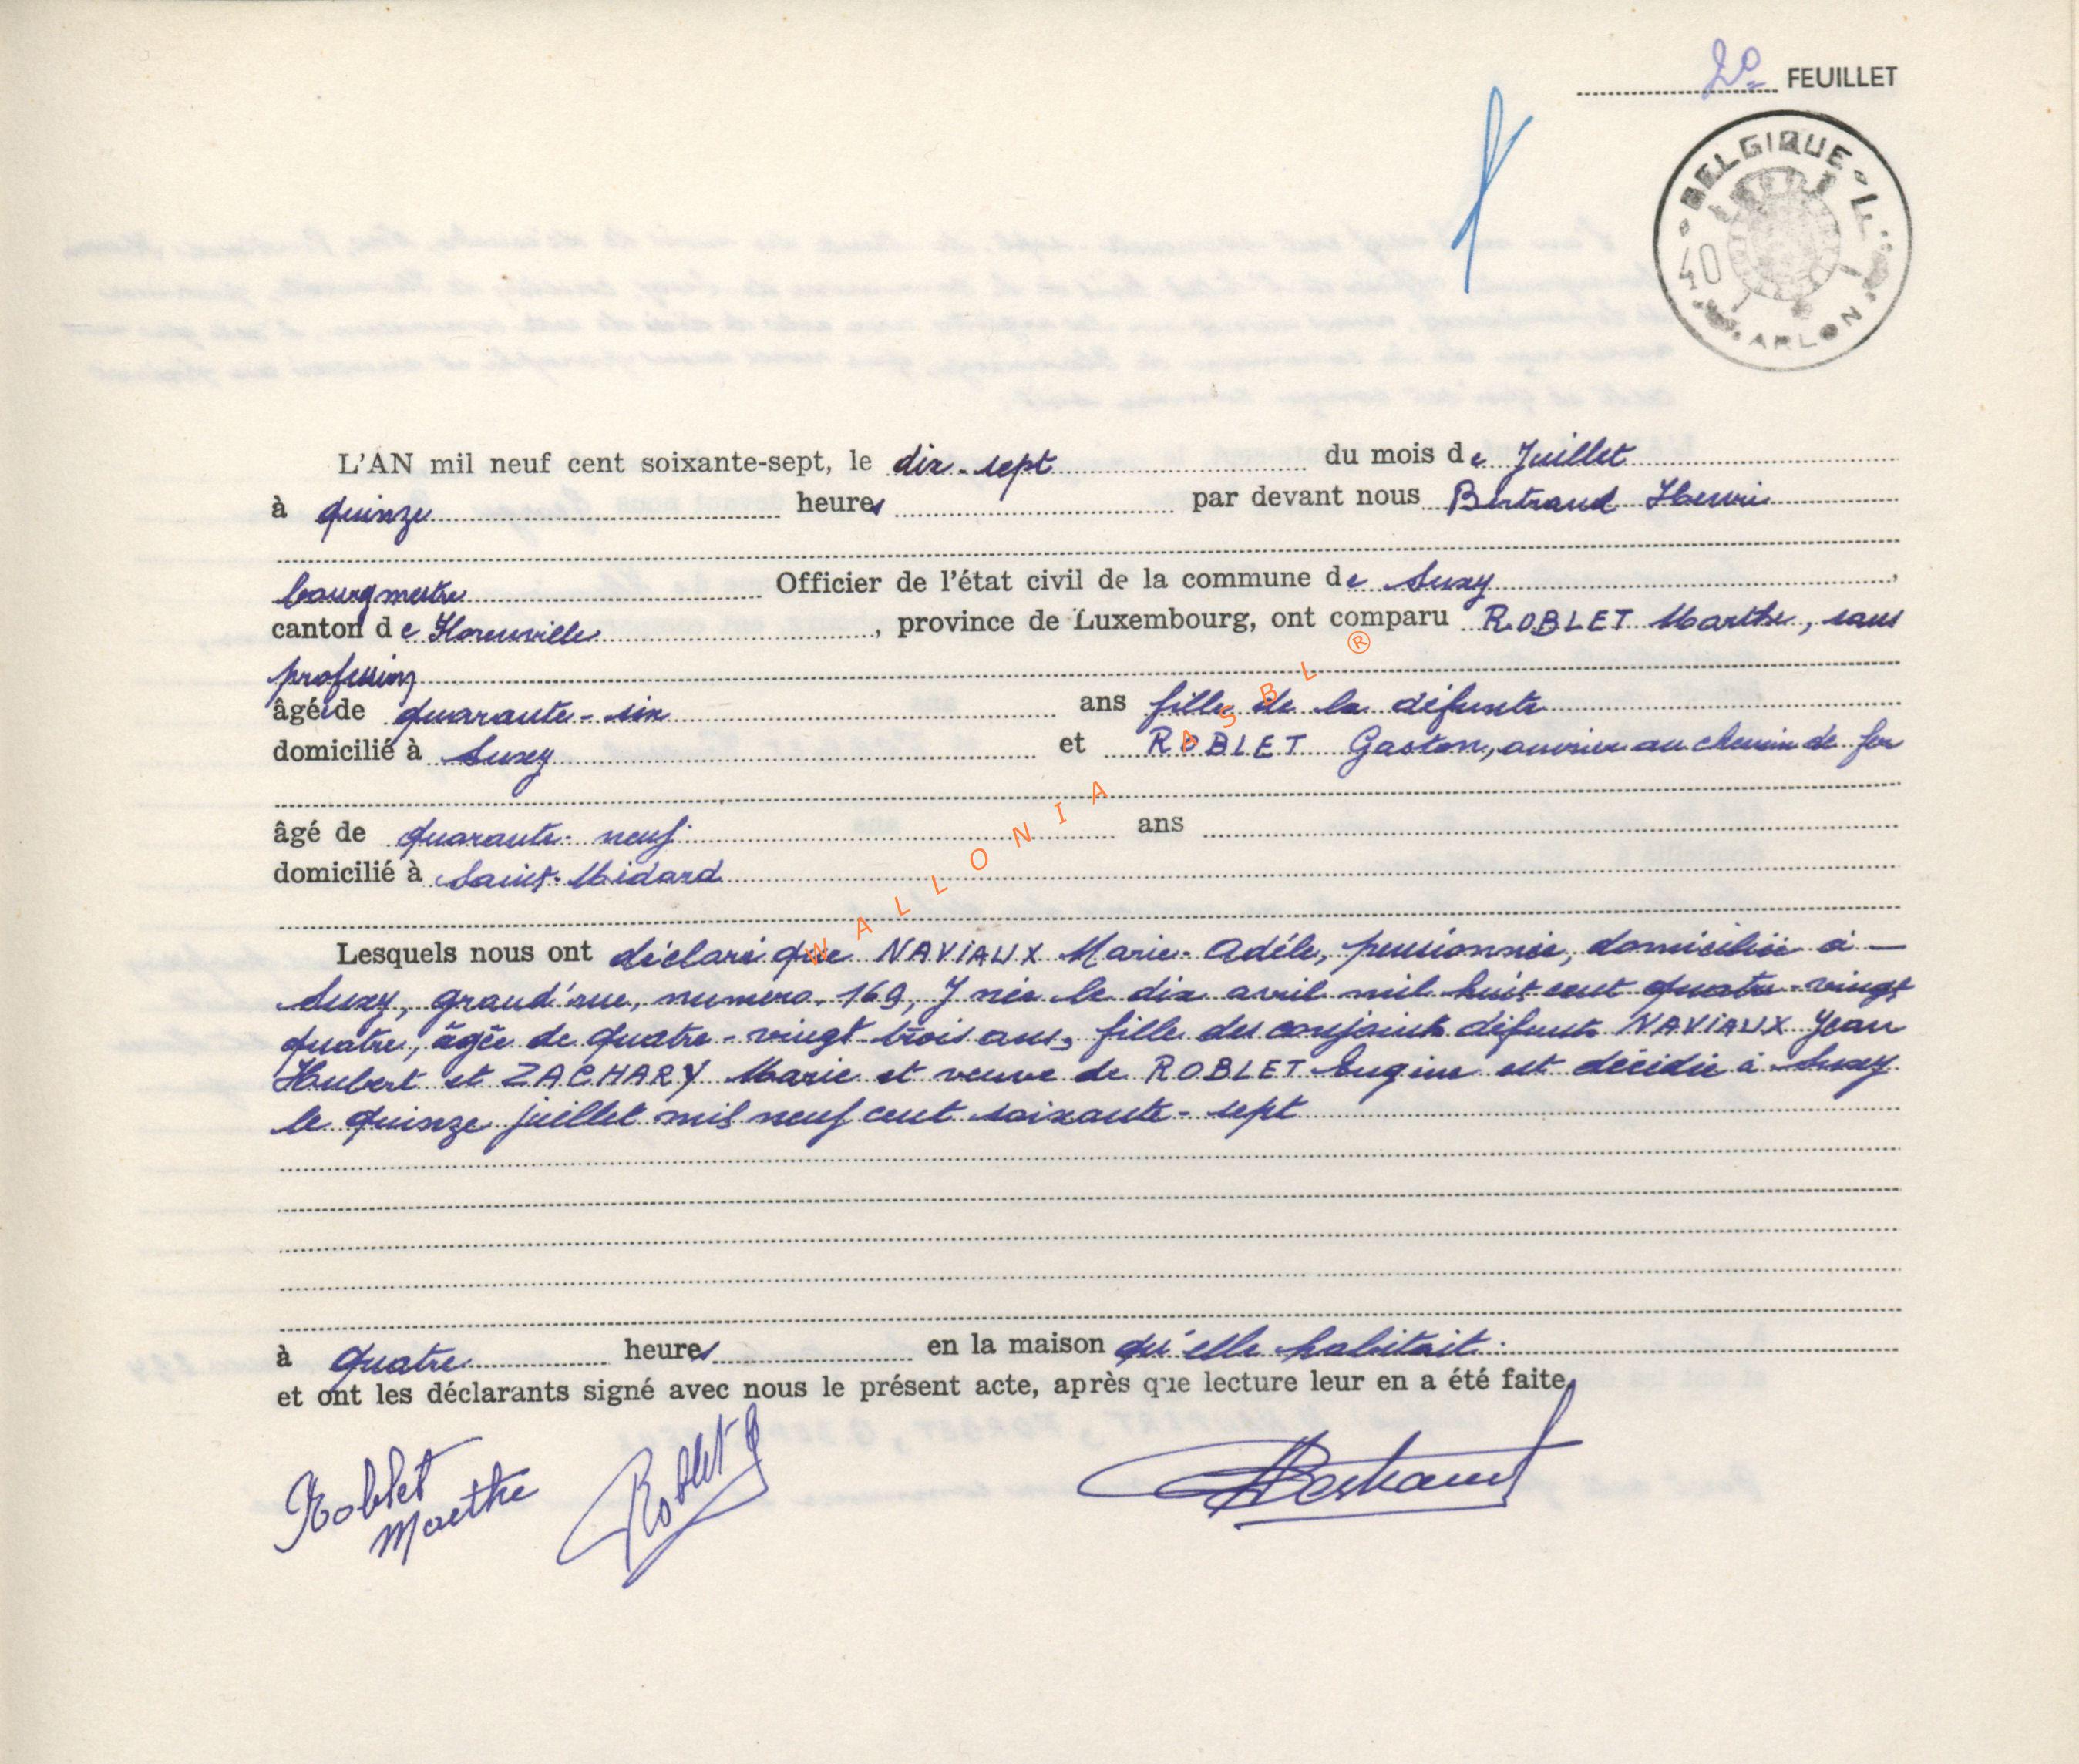 2e FEUILLET
BELGIQUE
40
ARLON
L'AN mil neuf cent soixante-sept, le dix-sept du mois de Juillet
à quinze heures par devant nous Bertrand Henri
bourgmestre Officier de l'état civil de la commune de Suxy,
canton de Florenville, province de Luxembourg, ont comparu ROBLET Marthe, sans
profession
âgée de quarante-six ans fille de la défunte
domicilié à Suxy et ROBLET Gaston, ouvrier au chemin de fer
âgé de quarante-neuf ans
domicilié à Saint-Médard
Lesquels nous ont déclaré que NAVIAUX Marie-Adèle, pensionnée, domiciliée à —
Suxy, grand'rue, numéro, 169, y née le dix avril mil huit cent quatre-vingt
quatre, âgée de quatre-vingt-trois ans, fille des conjoints défunts NAVIAUX Jean
Hubert et ZACHARY Marie et veuve de ROBLET Eugène est décédée à Suxy
le quinze juillet mil neuf cent soixante-sept
à quatre heures en la maison qu'elle habitait.
et ont les déclarants signé avec nous le présent acte, après que lecture leur en a été faite.
Roblet
Marthe
Roblet G
HBertrand
WALLONIA ASBL ®